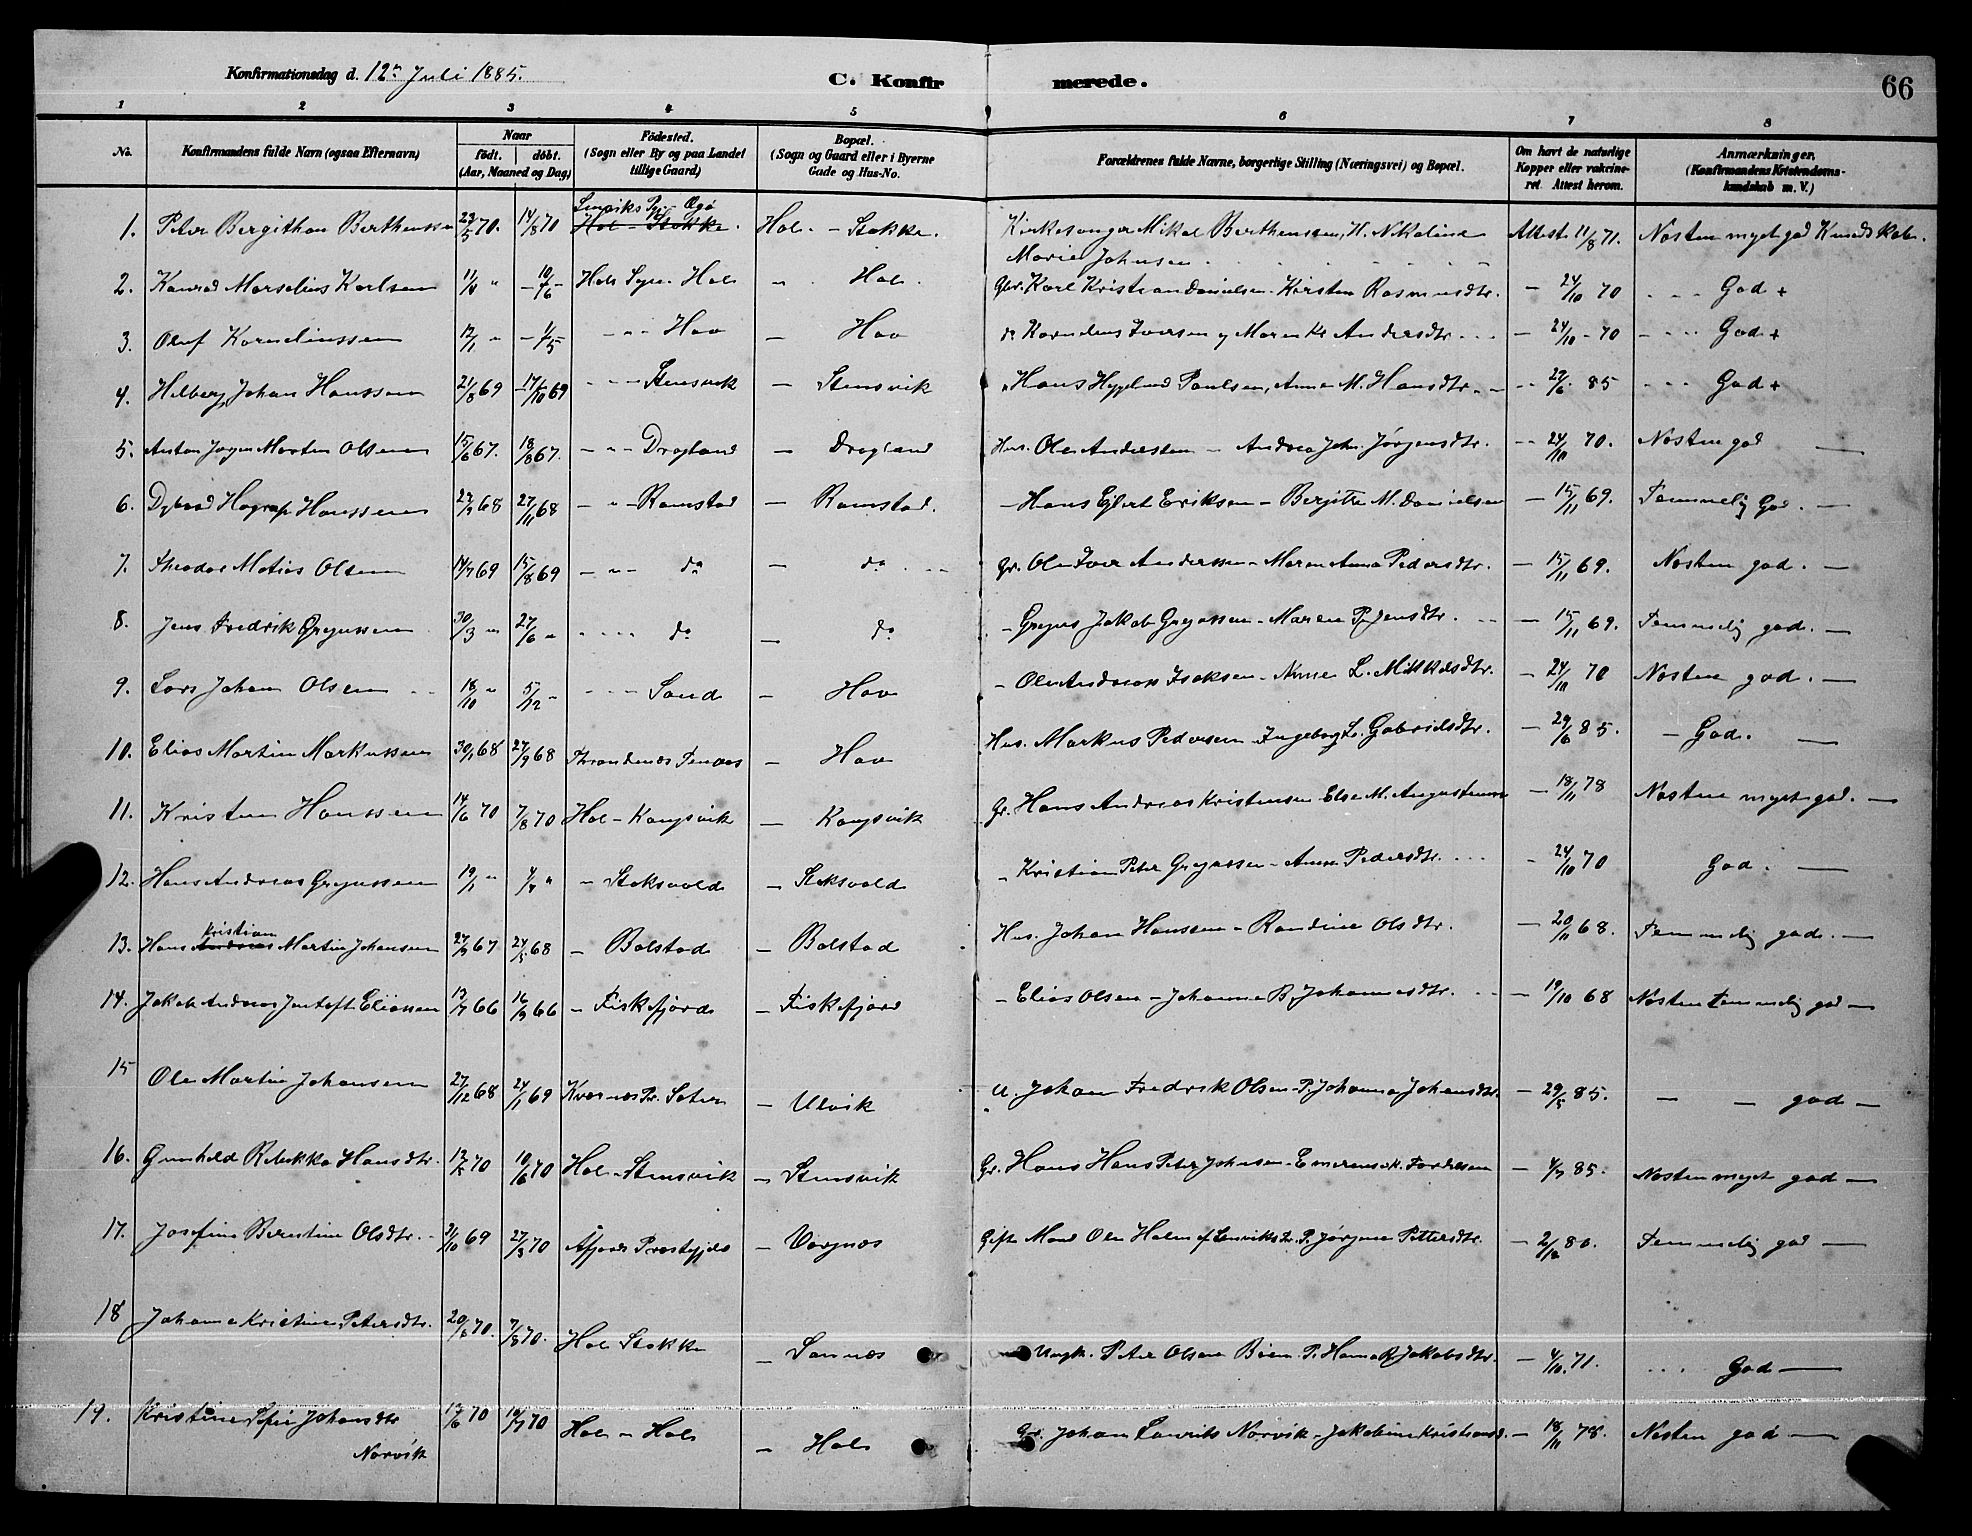 Konfirmationsdag d. 12te Juli 1885.
C. Konfirmerede.
66
1 2 3 4 5 6 7 8
No. Konfirmandens fulde Navn (ogsaa Efternavn)
Naar født. døbt. (Aar, Maaned og Dag)
Fødested. (Sogn eller By og paa Landet tillige Gaard)
Bopæl. (Sogn og Gaard eller i Byerne Gade og Hus-No.
Forældrenes fulde Navne, borgerlige Stilling (Næringsvei) og Bopæl.
Om havt de naturlige Kopper eller vakcineret. Attest herom.
Anmærkninger. (Konfirmandens Kristendomskundskab m. V.)
1. Peter Bergithon Berthenssen 23/5 70. 14/8 70 Hol - Stokke. Hol - Stokke. Kirkesanger Mikal Berthenssen, H. Nikoline Attest 11/8 71. Næsten myet god Kundskab.
Marie Johnsen
2. Konrad Marselius Karlsen 11/4 " - 10/6 - Hols Sgn. Hol " Hol. Gbr. Karl Kristian Danielsen - Kirsten Rasmusdtr. - 24/10 70 " " " God +
3. Oluf Korneliussen 17/1 " - 1/5 " " Hov - Hov Kornelius Iversen og Maren Kr. Andersdtr. - 24/10 - 70 - " " God +
4. Helberg Johan Hanssen 21/8 69 - 17/10 69 " " " Stensvik - Stensvik " Hans Hygelund Paulsen, Anne M. Hansdtr. - " 29/6 85 " " " God +
5. Anton Jørgen Morten Olsen 15/6 67. 18/8 67. - " - Dragland - Dragland Hus. Ole Anderssen - Andrea Joh. Jørgensdtr. - 24/10 70. Næsten god
6. Hagrup Hanssen 68 27/11 68 - " - Ramstad - Ramstad. - Hans Ejlert Eriksen - Bergitte M. Danielsen - 15/11 69. Temmelig god. -
7. Theodor Matias Olsen 14/7 69 15/8 69 - " - do - do Gr. Ole Iver Anderssen - Maren Anna Pedersdtr. - 15/11 69. Næsten god. -
8. Jens Fredrik Gregussen 30/3 " 27/6 " " " " do - do - Gregus Jakob Gregussen - Maren P. Jensdtr. - 15/11 69. Temmelig god. -
9. Lars Johan Olsen 18/10 " 5/12 " " " " Sand - Hov - Ole Andreas Isaksen - L. Mikkelsdtr. - 24/10 70 Næsten god. -
10. Elias Martin Markussen 30/1 68 27/9 68 Throndenæs - Hov Hus. Markus Pedersen - Ingeborg L. Gabrielsdtr. - 29/6 85. - God. -
11. Kristen Hanssen 14/6 70 7/8 70 Hol - Kongsvik - Kongsvik Gr. Hans Andreas Kristensen Else M. Augustinusd - 18/11 78 Næsten myet god. -
12. Hans Andreas Gregussen 19/1 " " - Stoksvold - Stoksvold - Kristian Peter Gregussen - Anne Pedersdtr. - 24/10 70 God. -
Kristian
13. Hans Andreas Martin Johansen 27/9 67 24/5 68 - Bolstad - Bolstad Hus. Johan Hanssen - Randine Olsdtr. - 20/11 68. Temmelig god. -
14. Jakob Andreas Jentoft Eliassen 13/7 66 16/9 66 - Fiskefjord - Fiskefjord - Elias Olsen - Johanna B. Johannesdtr. - 19/10 68 Næsten temmelig god -
15 Ole Martin Johansen 27/12 68 24/1 69 Kværnes - Ulvik U. Johan Fredrik Olsen - P. Johanna Johansdtr. - 29/5 85. - - god -
16. Gunhild Rebekka Hansdtr. 13/5 70 10/6 70 Hol - Stensvik - Stensvik Gr. Hans Hans Peter Johnsen - - 4/7 85. Næsten myet god -
17. Josefine Berntine Olsdtr. 31/10 69 27/3 70 Åfjord Prestegjeld - Vognæs Gift Mand Ole Holm af Lenvik P. Jørgine Pettersdtr. - Temmelig god -
18 Johanna Kristine Petersdtr. 70. 7/8 70. Hol Stokke - Sannæs Ungk. Peter Olsen Bøen P. Hanna Jakobsdtr. - 4/10 71. " " God -
19. Kristine Sofie Johansdtr 13/6 70 70 Hol - Hol - Hol Gr. Johan Lauritz Norvik - Jakobine Kristiansd. - 18/11 78. Næsten god -
Norvik